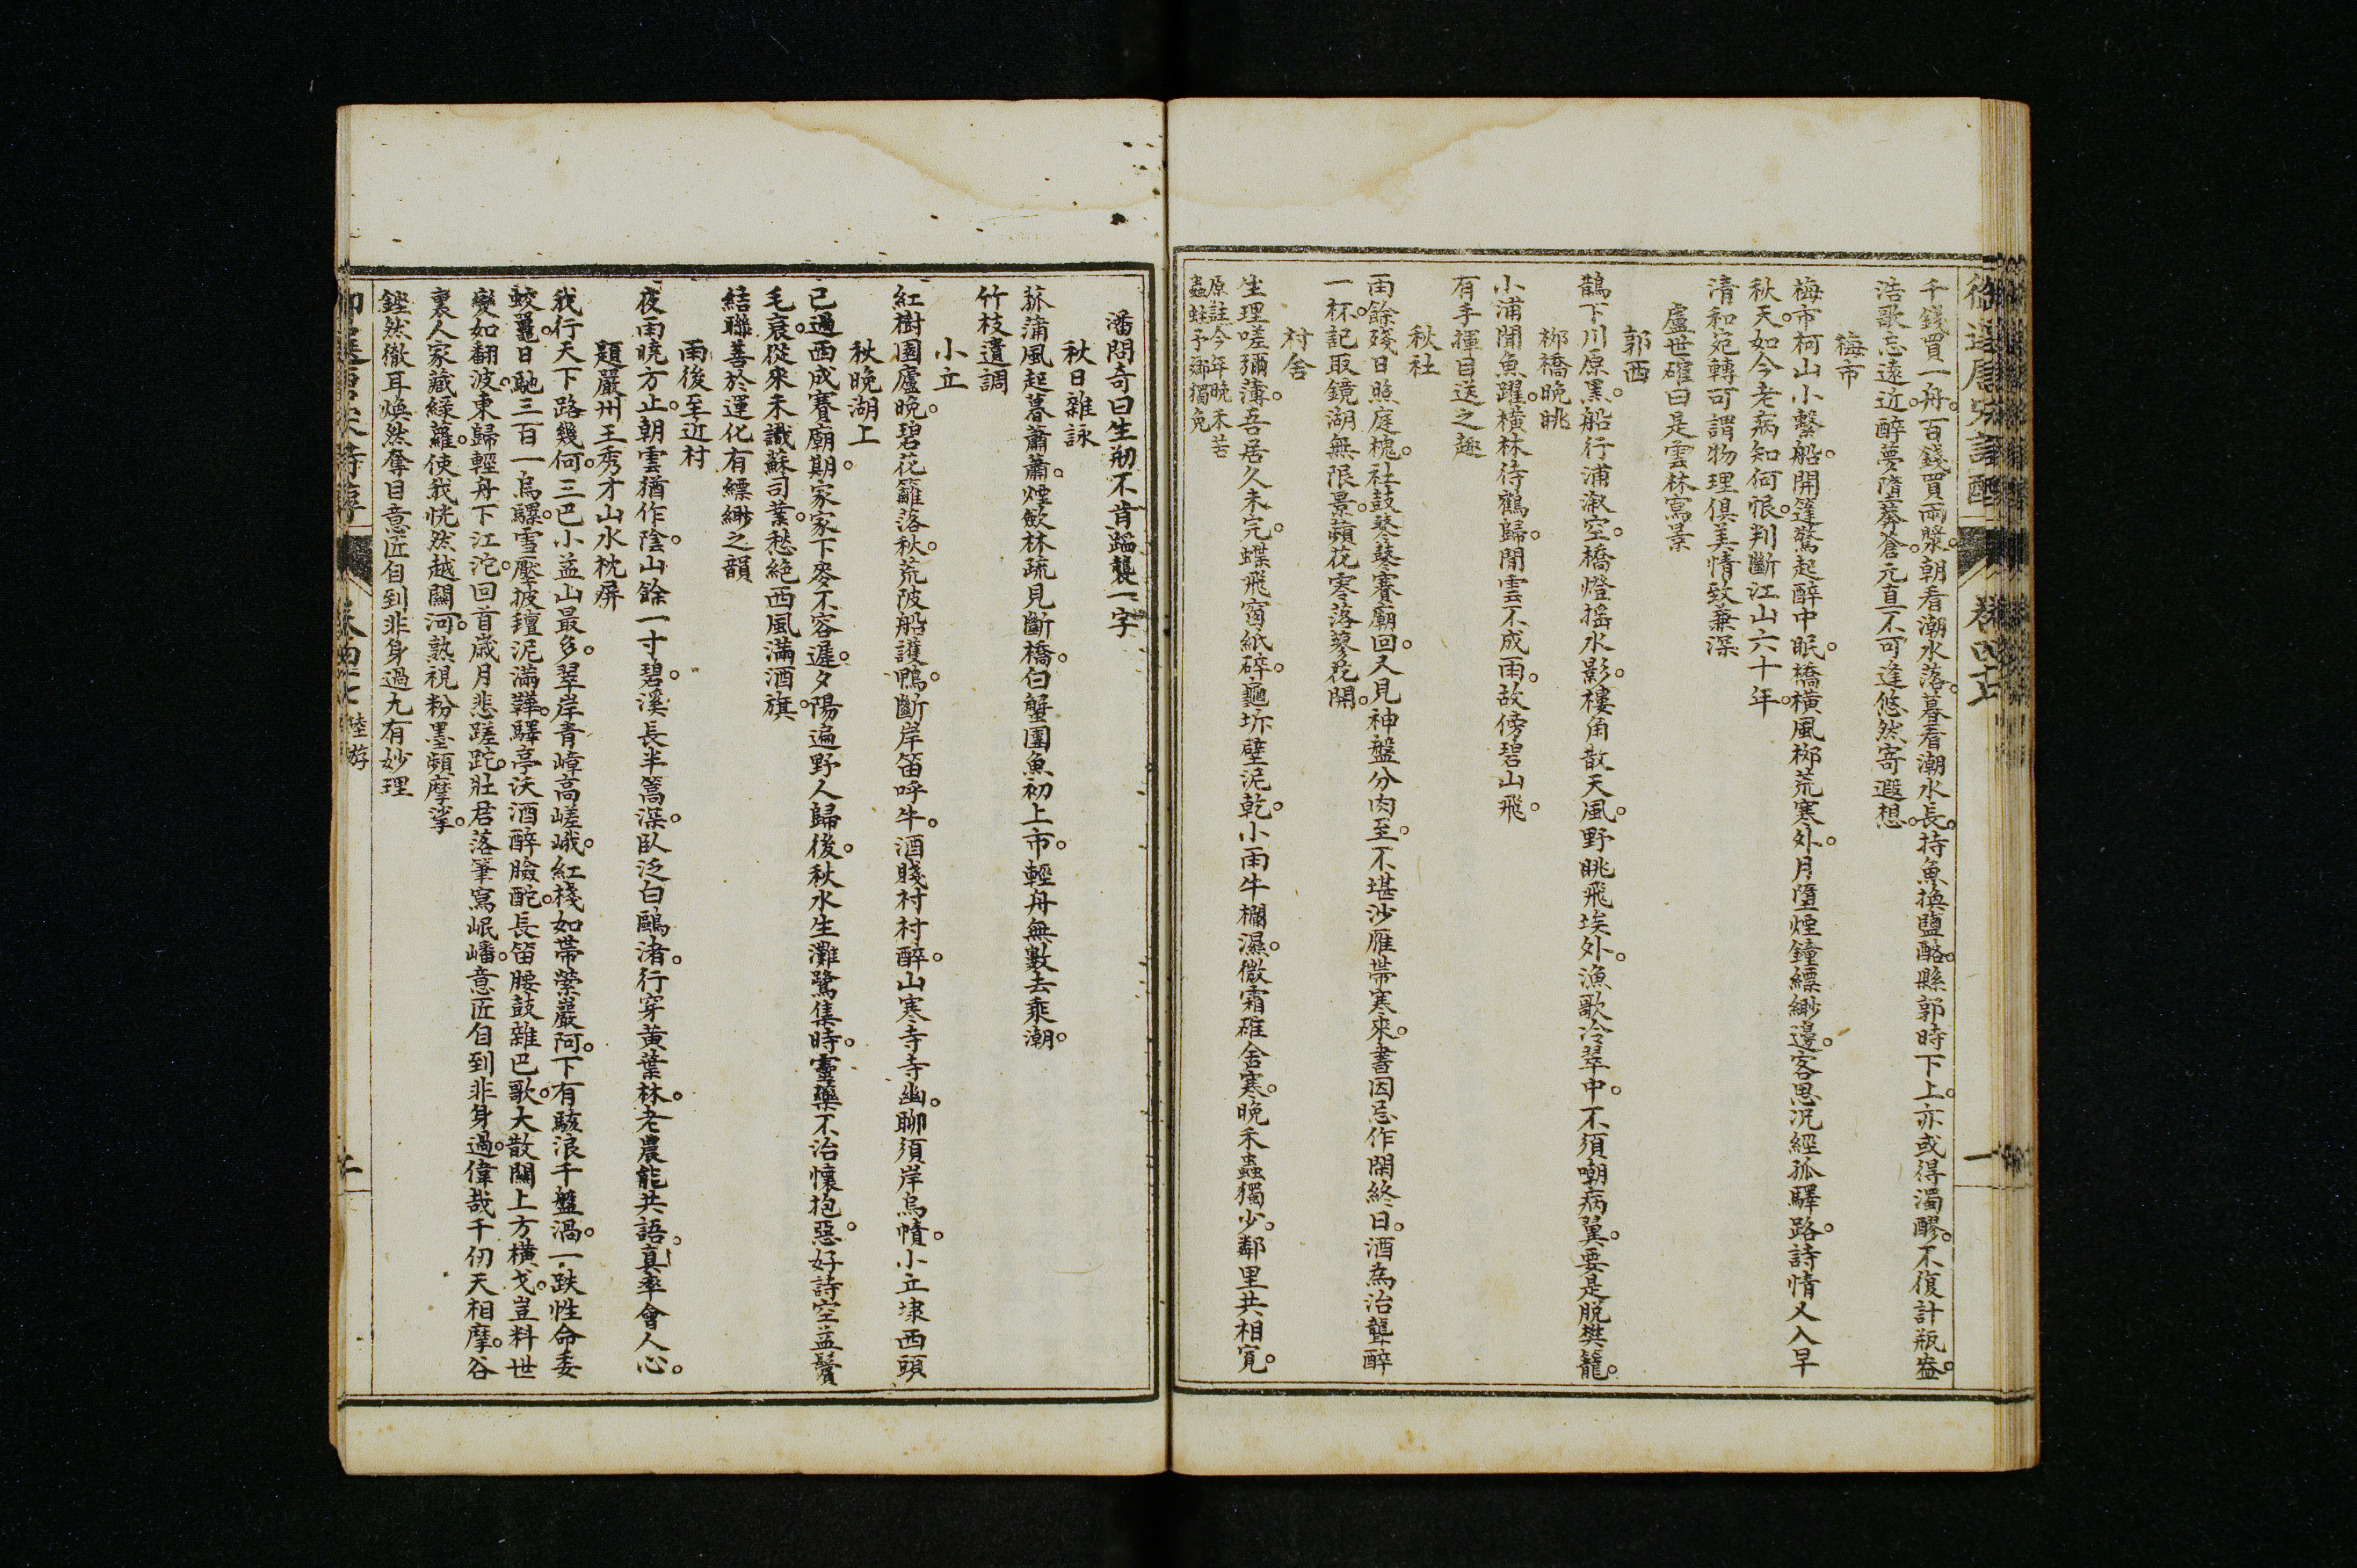 千錢買一舟百錢買兩槳朝看潮水落暮看潮水長持魚換鹽酪縣郭時下上亦或得濁醪不復計瓶盎
浩歌忘遠近醉夢墮莽蒼元真不可逢悠然寄遐想
梅市
梅市柯山小繫船開篷驚起醉中眠橋橫風柳荒寒外月墮煙鐘縹緲邊客思況經孤驛路詩情又入早
秋天如今老病知何恨判斷江山六十年
清和宛轉可謂物理俱美情致兼深
盧世㴶曰是雲林寫景
郭西
鵲下川原黑船行浦漵空橋燈搖水影樓角散天風野眺飛埃外漁歌冷翠中不須嘲病翼要是脫樊籠
柳橋晚眺
小浦聞魚躍橫林待鶴歸閒雲不成雨故傍碧山飛
有手揮目送之趣
秋社
雨餘殘日照庭槐社鼓鼕鼕賽廟回又見神盤分肉至不堪沙雁帶寒來書因忌作閑終日酒為治聾醉
一杯記取鏡湖無限景蘋花零落蓼花開
村舍
生理嗟彌薄吾居久未完蝶飛窗紙碎龜坼壁泥乾小雨牛欄濕微霜碓舍寒晚禾蟲獨少鄰里共相寬
原註今年晚禾苦
蟲蛀予鄉獨免
潘問奇曰生剏不肯蹈襲一字
秋日雜詠
菰蒲風起暮蕭蕭煙斂林疏見斷橋白蟹團魚初上市輕舟無數去乘潮
竹枝遺調
小立
紅樹園廬晚碧花籬落秋荒陂船護鴨斷岸笛呼牛酒賤村村醉山寒寺寺幽聊須岸烏幘小立埭西頭
秋晚湖上
已過西成賽廟期家家下麥不容遲夕陽遍野人歸後秋水生灘鷺集時靈藥不治懷抱惡好詩空益鬢
毛衰從來未識蘇司業愁絕西風滿酒旗
結聯善於運化有縹緲之韻
雨後至近村
夜雨曉方止朝雲猶作陰山餘一寸碧溪長半篙深臥泛白鷗渚行穿黃葉林老農能共語真率會人心
題嚴州王秀才山水枕屏
我行天下路幾何三巴小益山最多翠岸青嶂高嵯峨紅棧如帶縈巖阿下有駭浪千盤渦一跌性命委
蛟鼉日馳三百一烏騾雪壓披氈泥滿韡驛亭沃酒醉臉酡長笛腰鼓雜巴歌大散關上方橫戈豈料世
變如翻波東歸輕舟下江沱回首歲月悲蹉跎壯君落筆寫岷嶓意匠自到非身過偉哉千仞天相摩谷
裏人家藏綠蘿使我恍然越關河熟視粉墨頻摩挲
鏗然徹耳煥然奪目意匠自到非身過尤有妙理
陸游